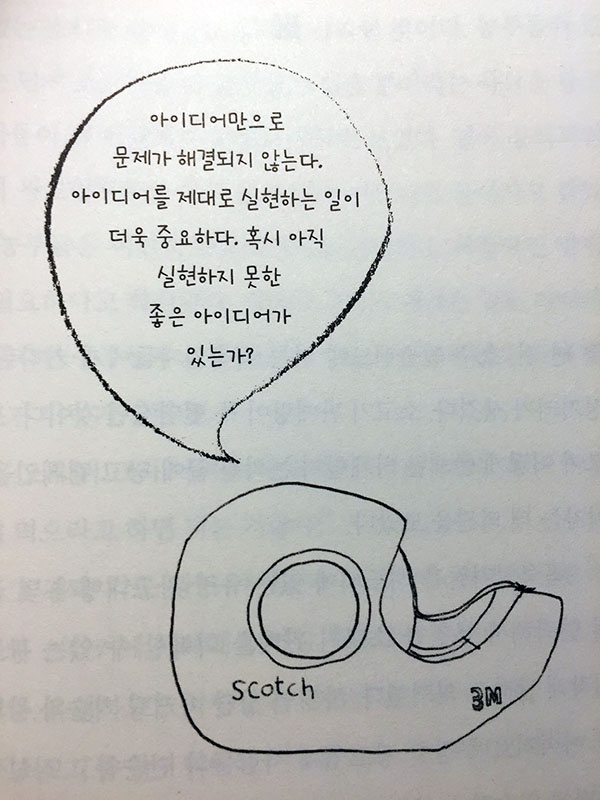 아이디어만으로
문제가 해결되지 않는다.
아이디어를 제대로 실현하는 일이
더욱 중요하다. 혹시 아직
실현하지 못한
좋은 아이디어가
있는가?
Scotch
3M